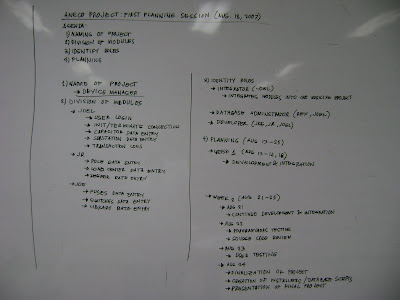 ANECO PROJECT: FIRST PLANNING SESSION (AUG. 13, 2007)
AGENDA:
1) NAMING OF PROJECT
2) DIVISION OF MODULES
3) IDENTIFY ROLES
4) PLANNING
1) NAME OF PROJECT
→ DEVICE MANAGER
2) DIVISION OF MODULES
→ JOEL
→ USER LOGIN
→ INIT/TERMINATE CONNECTION
→ CAPACITOR DATA ENTRY
→ SUBSTATION DATA ENTRY
→ TRANSACTION LOGS
→ JR
→ POLE DATA ENTRY
→ LOAD CENTER DATA ENTRY
→ DATA ENTRY
→ JOE
→ FUSES DATA ENTRY
→ SWITCHES DATA ENTRY
→ DATA ENTRY
3) IDENTIFY ROLES
→ INTEGRATOR (JOEL)
→ INTEGRATING MODULES INTO ONE WORKING PROJECT
→ DATABASE ADMINISTRATOR (JOEL)
→ DEVELOPER (JOE, JR, JOEL)
4) PLANNING (AUG 13-25)
→ WEEK 1 (AUG 13-16, 18)
→ DEVELOPMENT & INTEGRATION
→ WEEK 2 (AUG 21-25)
→ AUG 21
→ CONTINUE DEVELOPMENT & INTEGRATION
→ AUG 22
→ PROGRAMMERS TESTING
→ SOURCE CODE REVIEW
→ AUG 23
→ USER TESTING
→ AUG 24
→ FINALIZATION OF PROJECT
→ CREATION OF INSTALLERS/DATABASE SCRIPTS
→ PRESENTATION OF FINAL PROJECT